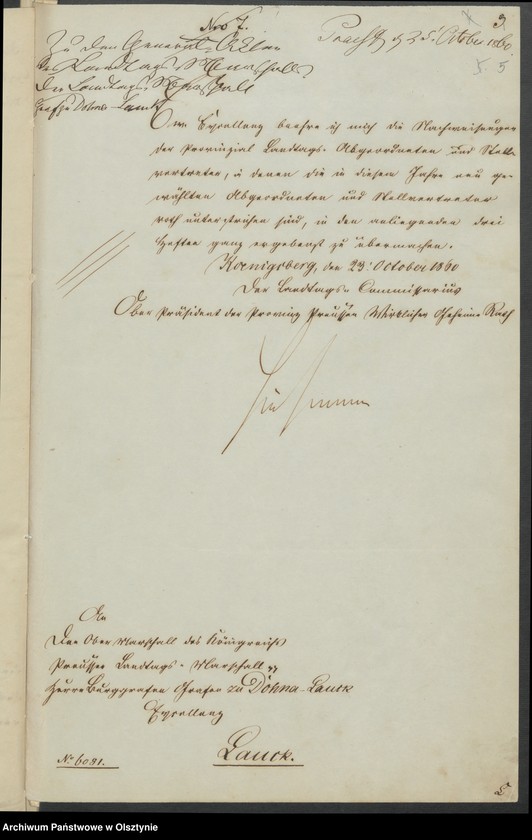 No 7.
3
Praes d 25 October 1860.
5
Zu den General-Akten
des Landtags-Marschalls
Grafen Dohna-Lauck
Ew. Excellenz beehre ich mich die Nachweisungen
der Provinzial Landtags-Abgeordneten und Stell-
vertreter, in denen die in diesem Jahre neu ge-
wählten Abgeordneten und Stellvertreter
roth unterstrichen sind, in den anliegenden drei
Heften ganz ergebenst zu übermachen.
Koenigsberg, den 23. October 1860
Der Landtags-Commissarius
Ober Präsident der Provinz Preussen Wirklicher Geheime Rath
An
Den Ober Marschall des Königreichs
Preussen Landtags-Marschall
Herrn Burggrafen Grafen zu Dohna-Lauck
Excellenz
No 6081.
Lauck.
Archiwum Państwowe w Olsztynie